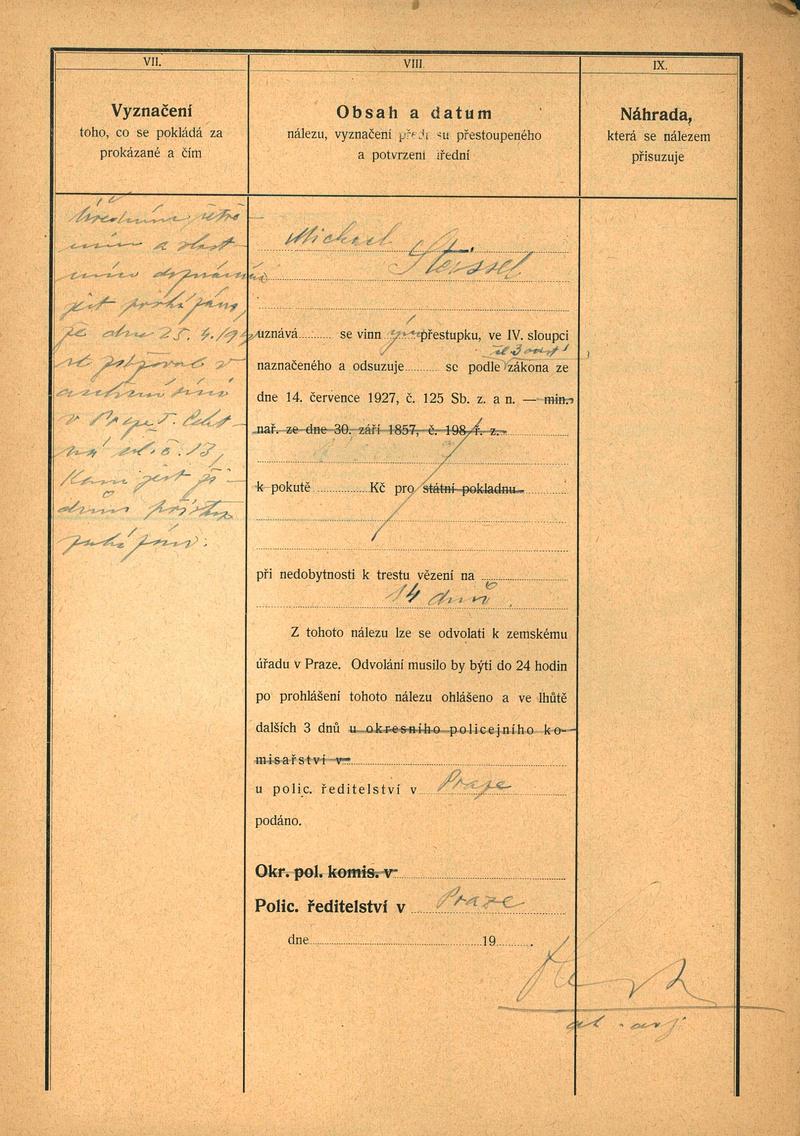 VII.
Vyznačení
toho, co se pokládá za
prokázané a čím
Úředním
a vlast
jest
že dne 25. 4. 194
v
v Praze I. Celet
ná ul. č. 13,
kam jest ži
dům přístup
VIII.
Obsah a datum
nálezu, vyznačení předpisu přestoupeného
a potvrzení úřední
Michael
Steissel
uznává se vinným přestupku, ve IV. sloupci
naznačeného a odsuzuje se podle čl. 3 odst. 1 zákona ze
dne 14. července 1927, č. 125 Sb. z. a n. — min.
nař. ze dne 30. září 1857, č. 198 ř. z.
k pokutě Kč pro státní pokladnu
při nedobytnosti k trestu vězení na
14 dnů.
Z tohoto nálezu lze se odvolati k zemskému
úřadu v Praze. Odvolání musilo by býti do 24 hodin
po prohlášení tohoto nálezu ohlášeno a ve lhůtě
dalších 3 dnů u okresního policejního ko-
misařství v
u polic. ředitelství v Praze
podáno.
Okr. pol. komis. v
Polic. ředitelství v Praze
dne 19 .
IX.
Náhrada,
která se nálezem
přisuzuje